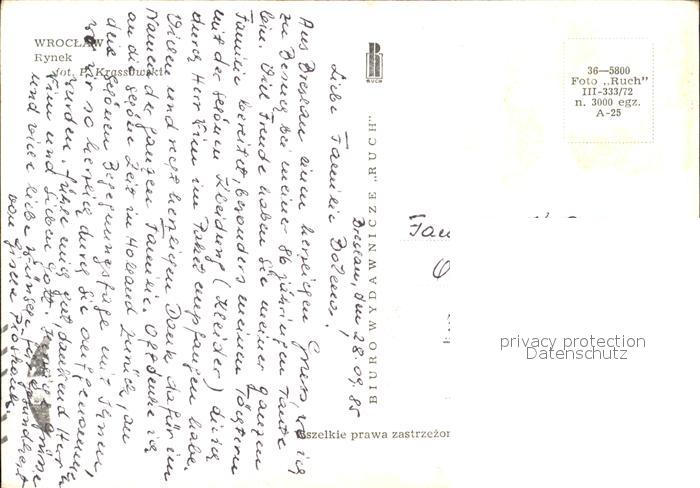 WROCŁAW
Rynek
fot. P. Krassowski
RUCH
BIURO WYDAWNICZE „RUCH"
36—5800
Foto „Ruch"
III-333/72
n. 3000 egz.
A-25
Wszelkie prawa zastrzeżon
Breslau, den 28.09.85
Liebe Familie
Aus Breslau einen herzigen Gruss, wo ich
zu Besuch bei meiner 86 jährigen Tante
bin. Viel Freude haben Sie meiner ganzen
Familie bereitet, besonders meinen Töchtern
mit der schönen Kleidung (Kleider) die ich
durch Herr Finn im Paket empfangen habe.
Vielen und recht herzigen Dank dafür im
Namen der ganzen Familie. Oft denke ich
an die schöne Zeit in Holland zurück, an
die schönen Begegnungstage mit Ihnen,
wo wir so herzig durch Sie aufgenommen
wurden. Fühle mich gut, dankend Herr
Finn und lieben Gott. Herzige Grüsse
und viele liebe Wünsche für Gesundheit
von
privacy protection
Datenschutz